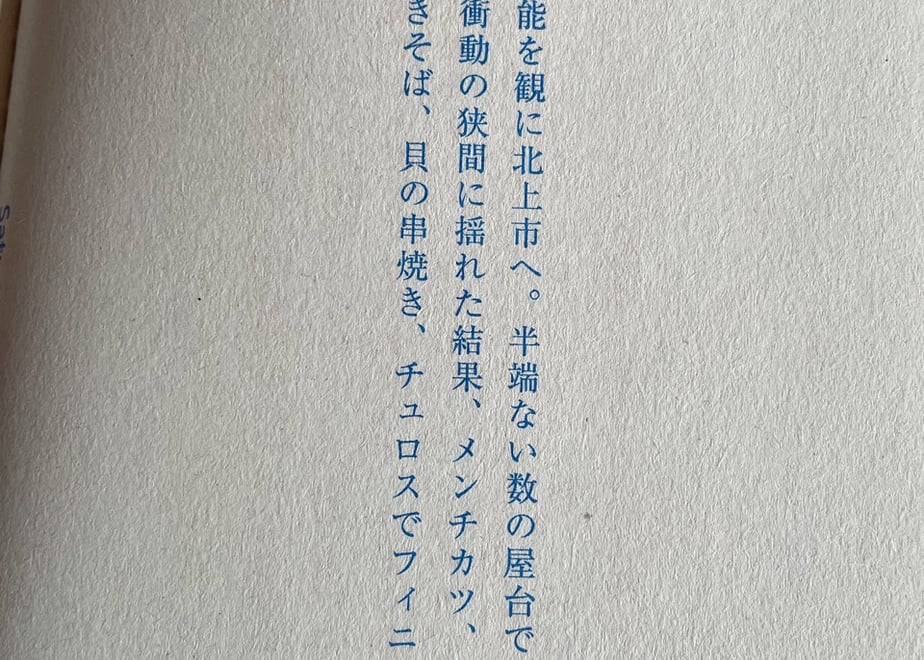 能を観に北上市へ。半端ない数の屋台で
衝動の狭間に揺れた結果、メンチカツ、
きそば、貝の串焼き、チュロスでフィニ